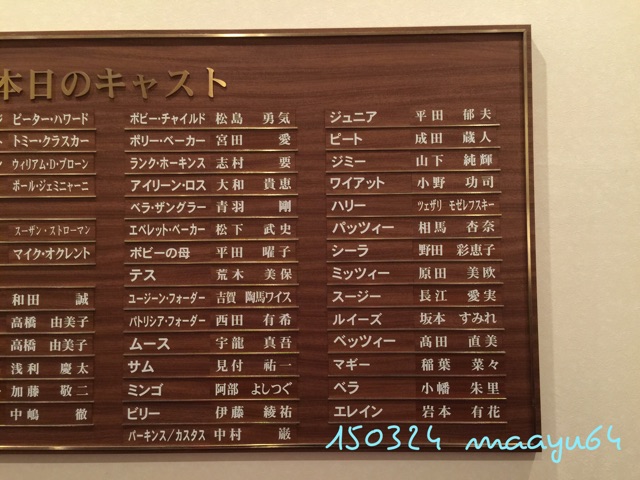 本日のキャスト
ピーター・ハワード
トミー・クラスカー
ウィリアム・D・ブローン
ポール・ジェミニャーニ
スーザン・ストローマン
マイク・オクレント
和田 誠
高橋 由美子
高橋 由美子
浅利 慶太
加藤 敬二
中嶋 徹
ボビー・チャイルド 松島 勇気
ポリー・ベーカー 宮田 愛
ランク・ホーキンス 志村 要
アイリーン・ロス 大和 貴恵
ベラ・ザングラー 青羽 剛
エベレット・ベーカー 松下 武史
ボビーの母 平田 曜子
テス 荒木 美保
ユージーン・フォーダー 吉賀 陶馬ワイス
パトリシア・フォーダー 西田 有希
ムース 宇龍 真吾
サム 見付 祐一
ミンゴ 阿部 よしつぐ
ビリー 伊藤 綾祐
パーキンス/カスタス 中村 巌
ジュニア 平田 郁夫
ピート 成田 蔵人
ジミー 山下 純輝
ワイアット 小野 功司
ハリー ツェザリ モゼレフスキー
パッツィー 相馬 杏奈
シーラ 野田 彩恵子
ミッツィー 原田 美欧
スージー 長江 愛実
ルイーズ 坂本 すみれ
ベッツィー 髙田 直美
マギー 稲葉 菜々
ベラ 小幡 朱里
エレイン 岩本 有花
150324 maayu64